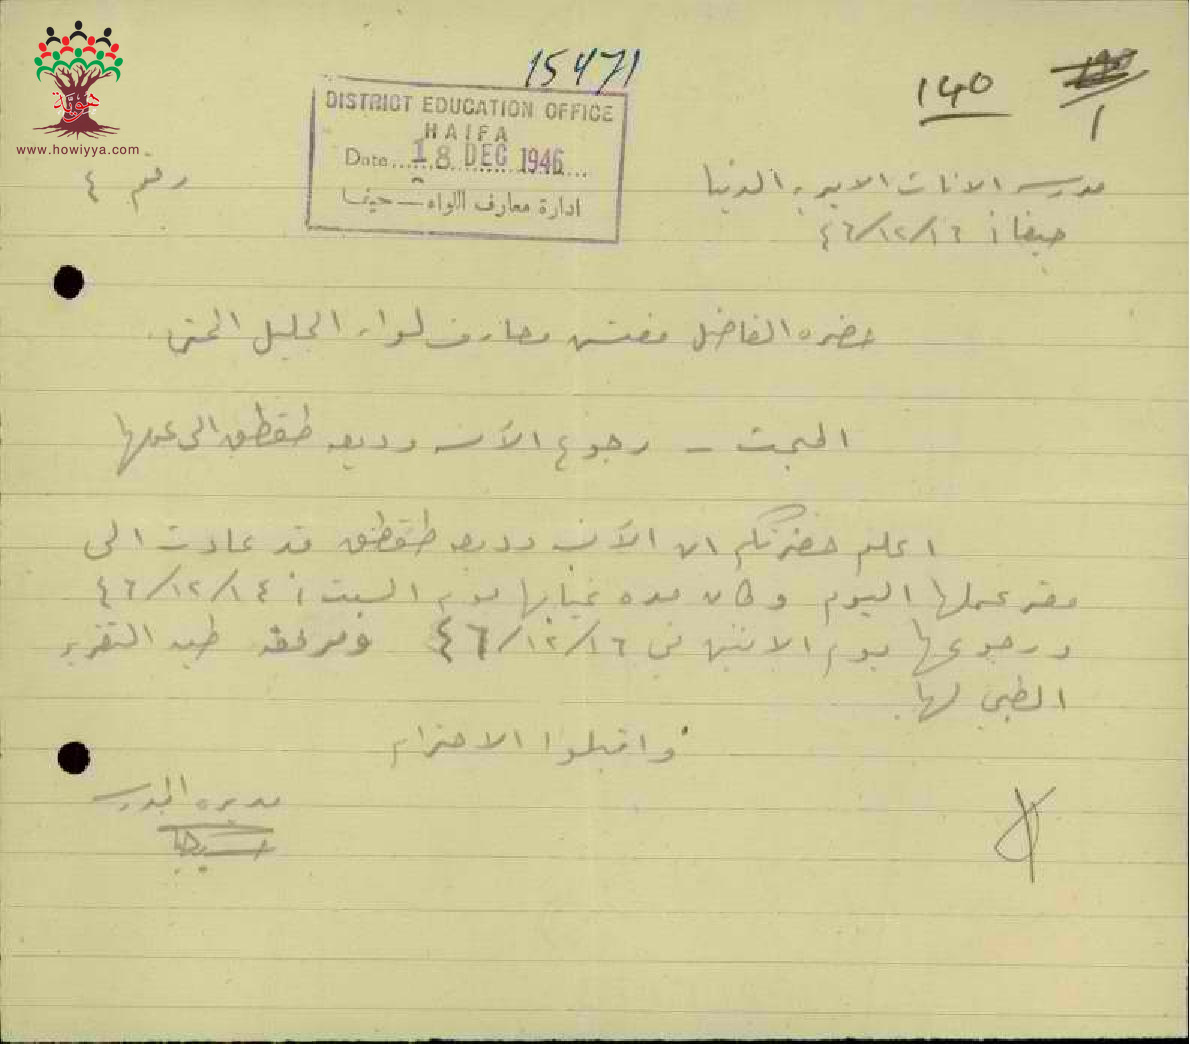 15471
140
1
DISTRICT EDUCATION OFFICE
HAIFA
Date 18 DEC 1946
ادارة معارف اللواء – حيفا
هوية
www.howiyya.com
رقم ٤
مدرسة الاناث الاميرية الدنيا
حيفا في ٤٦/١٢/١٦
حضرة الفاضل مفتش معارف لواء الجليل المحترم
المبحث – رجوع الآنسة وديعة طقطق الى عملها
اعلم حضرتكم ان الآنسة وديعة طقطق قد عادت الى
مقر عملها اليوم وكان مدة غيابها يوم السبت في ٤٦/١٢/١٤
ورجوعها يوم الاثنين في ٤٦/١٢/١٦ ومرفقه طيه التقرير
الطبي لها.
واقبلوا الاحترام
مديرة المدرسة